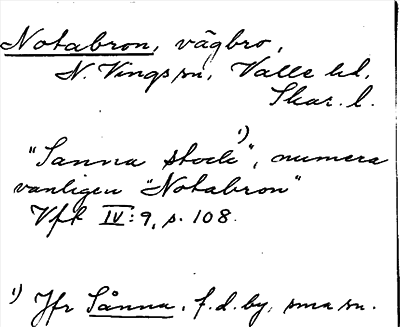 Notabron, vägbro,
N. Vings sn, Valle hd,
Skar. l.
"Sanna stock" ¹), numera
vanligen "Notabron"
Vft IV: 9, s. 108.
¹) Jfr Sånna, f.d. by, sma sn.